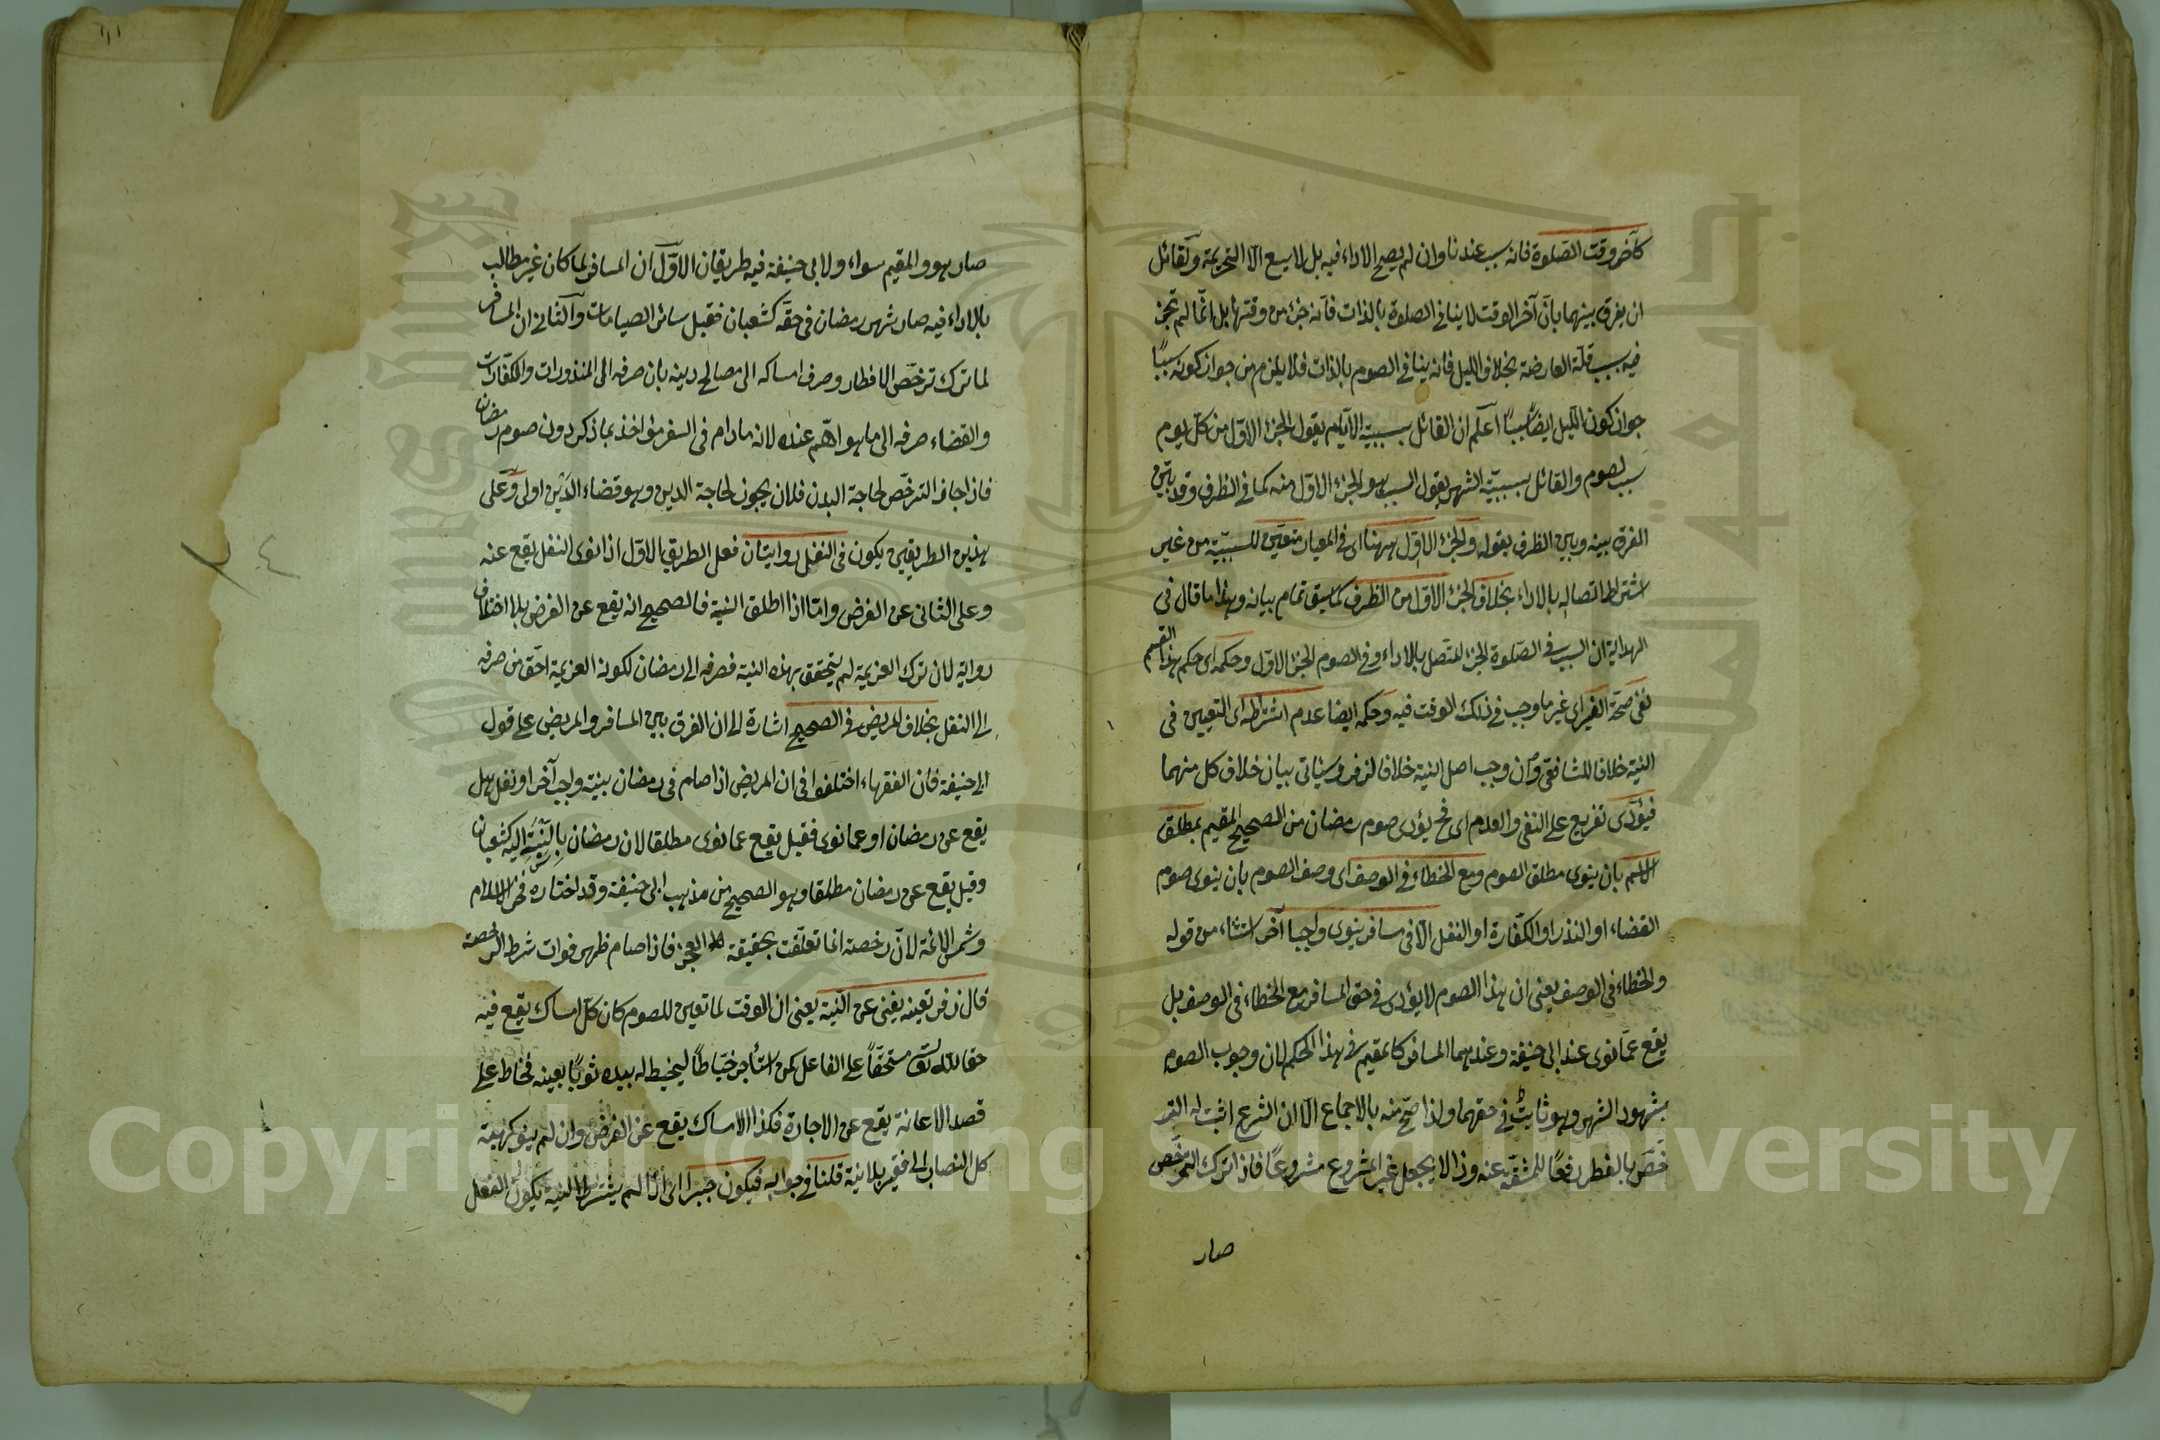 كآخر وقت الصلوة فانه سبب عندنا وان لم يصح الاداء فيه بل لا يسع الا التحريمة ولقائل
ان يفرق بينهما بان آخر الوقت لا ينافي الصلوة بالذات فانه جزء من وقتها بل انما لم تجز
فيه بسبب قلة العارضة بخلاف الليل فانه ينافي الصوم بالذات فلا يلزم من جواز كونه سببًا
جواز كون الليل ايضا سببًا اعلم ان القائل بسببية الايام يقول الجزء الاول من كل يوم
سبب لصوم والقائل بسببية الشهر يقول السبب هو الجزء الاول منه كما في الظرف وقد بين
الفرق بينه وبين الظرف بقوله والجزء الاول ههنا اى في المعيار متعين للسببية من غير
اشتراط اتصاله بالاداء بخلاف الجزء الاول من الظرف كما سبق تمام بيانه وهذا ما قال في
الهداية ان السبب في الصلوة الجزء المتصل بالاداء وفي الصوم الجزء الاول وحكمه اى حكم هذا القسم
نفى صحة الغير اى غير ما وجب في ذلك الوقت فيه وحكمه ايضا عدم اشتراطه اى التعيين في
النية خلافا للشافعي وان وجب اصل النية خلافا لزفر وسيأتي بيان خلاف كل منهما
فيؤدى تفريع على النفى والعدم اى فح يؤدى صوم رمضان من الصحيح المقيم بمطلق
الاسم بان ينوى مطلق الصوم ومع الخطاء في الوصف اى وصف الصوم بان ينوى صوم
القضاء او النذر او الكفارة او النفل الا في مسافر ينوى واجبا آخر استثناء من قوله
والخطاء في الوصف يعنى ان هذا الصوم لا يؤدى في حق المسافر مع الخطاء في الوصف بل
يقع عما نوى عند ابى حنيفة وعندهما المسافر كالمقيم في هذا الحكم لان وجوب الصوم
بشهود الشهر وهو ثابت في حقهما ولذا صح منه بالاجماع الا ان الشرع اثبت له الترخص
خص بالفطر دفعًا للمشقة عنه وذا لا يجعل غير المشروع مشروعًا فاذا ترك الترخص
صار
صار هو والمقيم سواء ولابى حنيفة فيه طريقان الاول ان المسافر لما كان غير مطالب
بالاداء فيه صار شهر رمضان في حقه كشعبان فقبل سائر الصيامات والثانى ان المسافر
لما ترك ترخص الافطار وصرف امساكه الى مصالح دينه بان صرفه الى المنذورات والكفارات
والقضاء صرفه الى ما هو اهم عنده لانه ما دام في السفر مؤاخذ بما ذكر دون صوم رمضان
فاذا جاز الترخص لحاجة البدن فلان يجوز لحاجة الدين وهو قضاء الدين اولى وعلى
هذين الطريقين يكون في النفل روايتان فعلى الطريق الاول اذا نوى النفل يقع عنه
وعلى الثانى عن الفرض واما اذا اطلق النية فالصحيح انه يقع عن الفرض بلا اختلاف
رواية لان ترك العزيمة لم يتحقق بهذه النية فصرفه الى رمضان لكونه العزيمة احق من صرفه
الى النفل بخلاف المريض في الصحيح اشارة الى ان الفرق بين المسافر والمريض على قول
ابى حنيفة فان الفقهاء اختلفوا في ان المريض اذا صام في رمضان بنية واجب آخر او نفل هل
يقع عن رمضان او عما نوى فقيل يقع عما نوى مطلقا لان رمضان بالنسبة اليه كشعبان
وقيل يقع عن رمضان مطلقا وهو الصحيح من مذهب ابى حنيفة وقد اختاره فخر الاسلام
وشمس الائمة لان رخصته انما تعلقت بحقيقة العجز فاذا صام ظهر فوات شرط الرخصة
قال زفر تعينه يغنى عن النية يعنى ان الوقت لما تعين للصوم كان كل امساك يقع فيه
حقا لله تعالى مستحقًا على الفاعل كمن استأجر خياطًا ليخيط له بيده ثوبًا بعينه فخاط على
قصد الاعانة يقع عن الاجارة فكذا الامساك يقع عن الفرض وان لم ينو كهبة
كل النصاب الى فقير بلا نية قلنا في جوابه فيكون جبرا اى اذا لم يشترط النية يكون الفعل